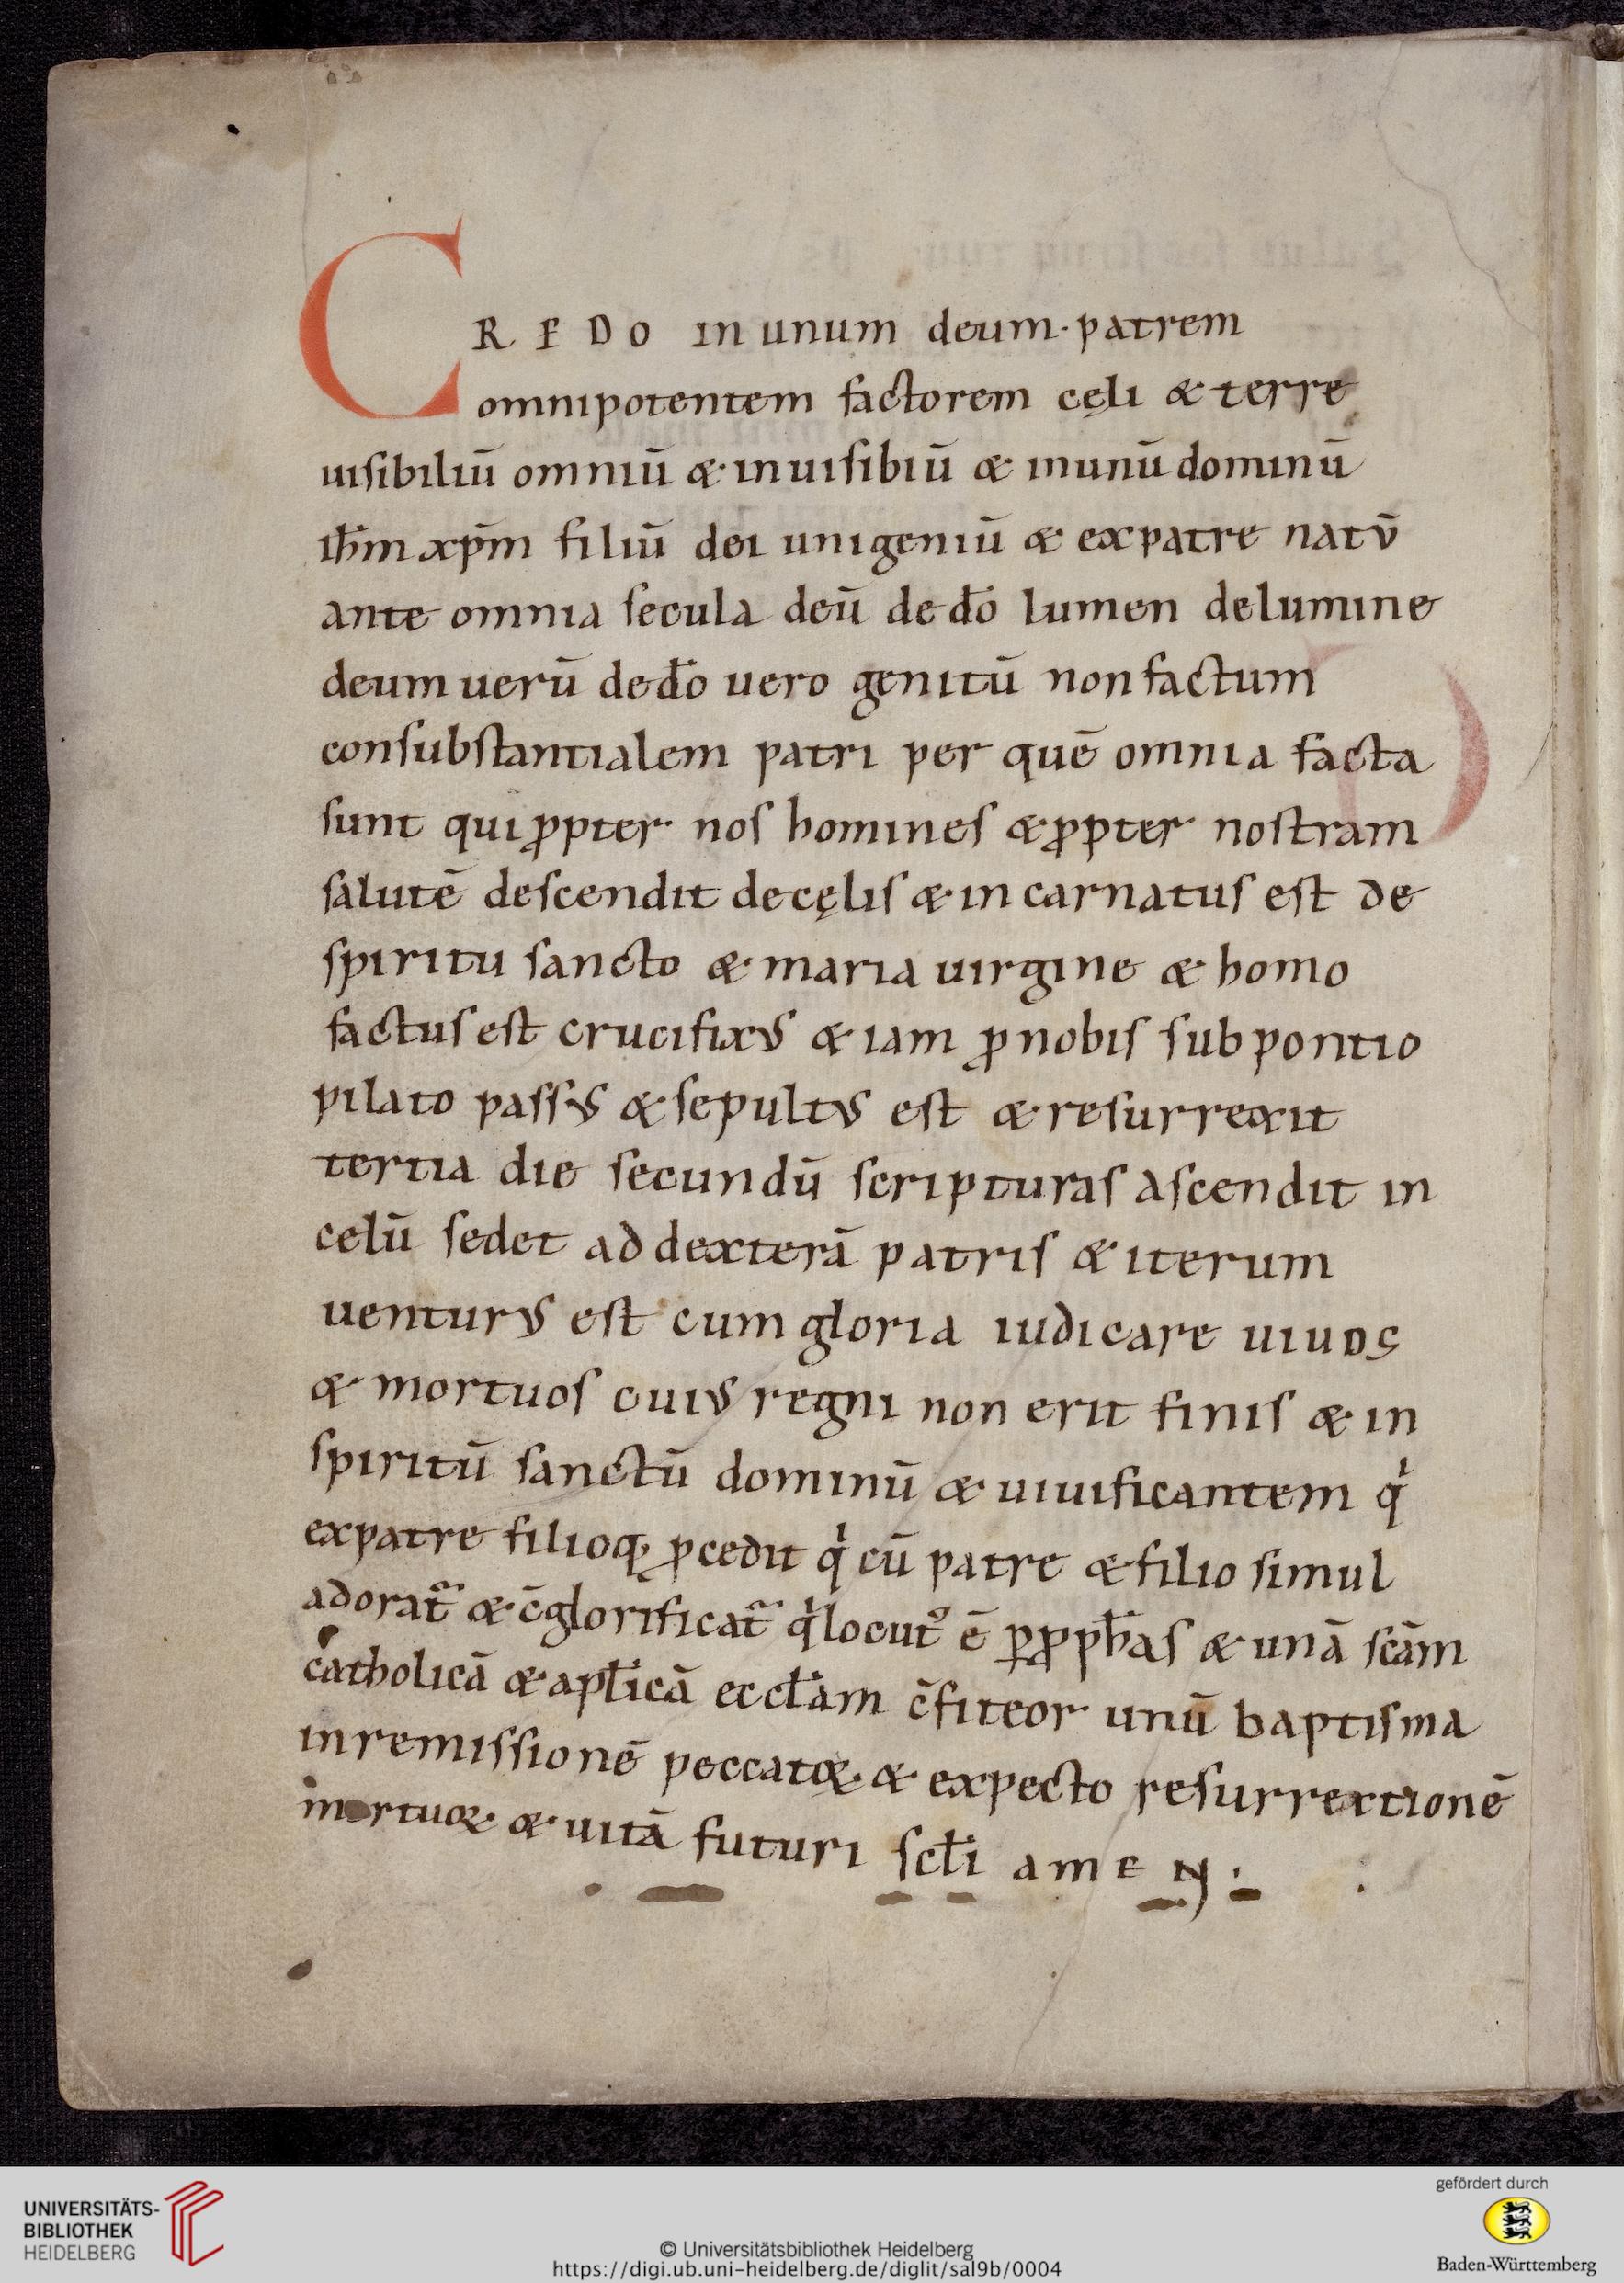 CREDO in unum deum· patrem
omnipotentem factorem cęli & terre
uisibiliū omniū & inuisibiū & inunū dominū
ih̄m xp̄m filiū dei unigeniū & expatre natū
ante omnia secula deū de dō lumen delumine
deum uerū dedō uero genitū non factum
consubstantialem patri per quē omnia facta
sunt qui ꝓpter nos homines & ꝓpter nostram
salutē descendit decęlis & incarnatus est de
spiritu sancto & maria uirgine & homo
factus est crucifixus & iam ꝓ nobis sub pontio
pilato passus & sepultus est & resurrexit
tertia die secundū scripturas ascendit in
celū sedet ad dexterā patris & iterum
uenturus est cum gloria iudicare uiuos
& mortuos cuius regni non erit finis & in
spiritū sanctū dominū & uiuificantem qͥ
expatre filioq; ꝓcedit qͥ cū patre & filio simul
adorat᷑ & c̄glorificat᷑ qͥ locutꝰ ē ꝑ ꝓph̄as & unā scām
catholicā & apl̄icā eccl̄am c̄fiteor unū baptisma
inremissionē peccatoꝝ & expecto resurrectionē
mortuoꝝ & uitā futuri scl̄i amEN:
UNIVERSITÄTS-
BIBLIOTHEK
HEIDELBERG
© Universitätsbibliothek Heidelberg
https://digi.ub.uni-heidelberg.de/diglit/sal9b/0004
gefördert durch
Baden-Württemberg